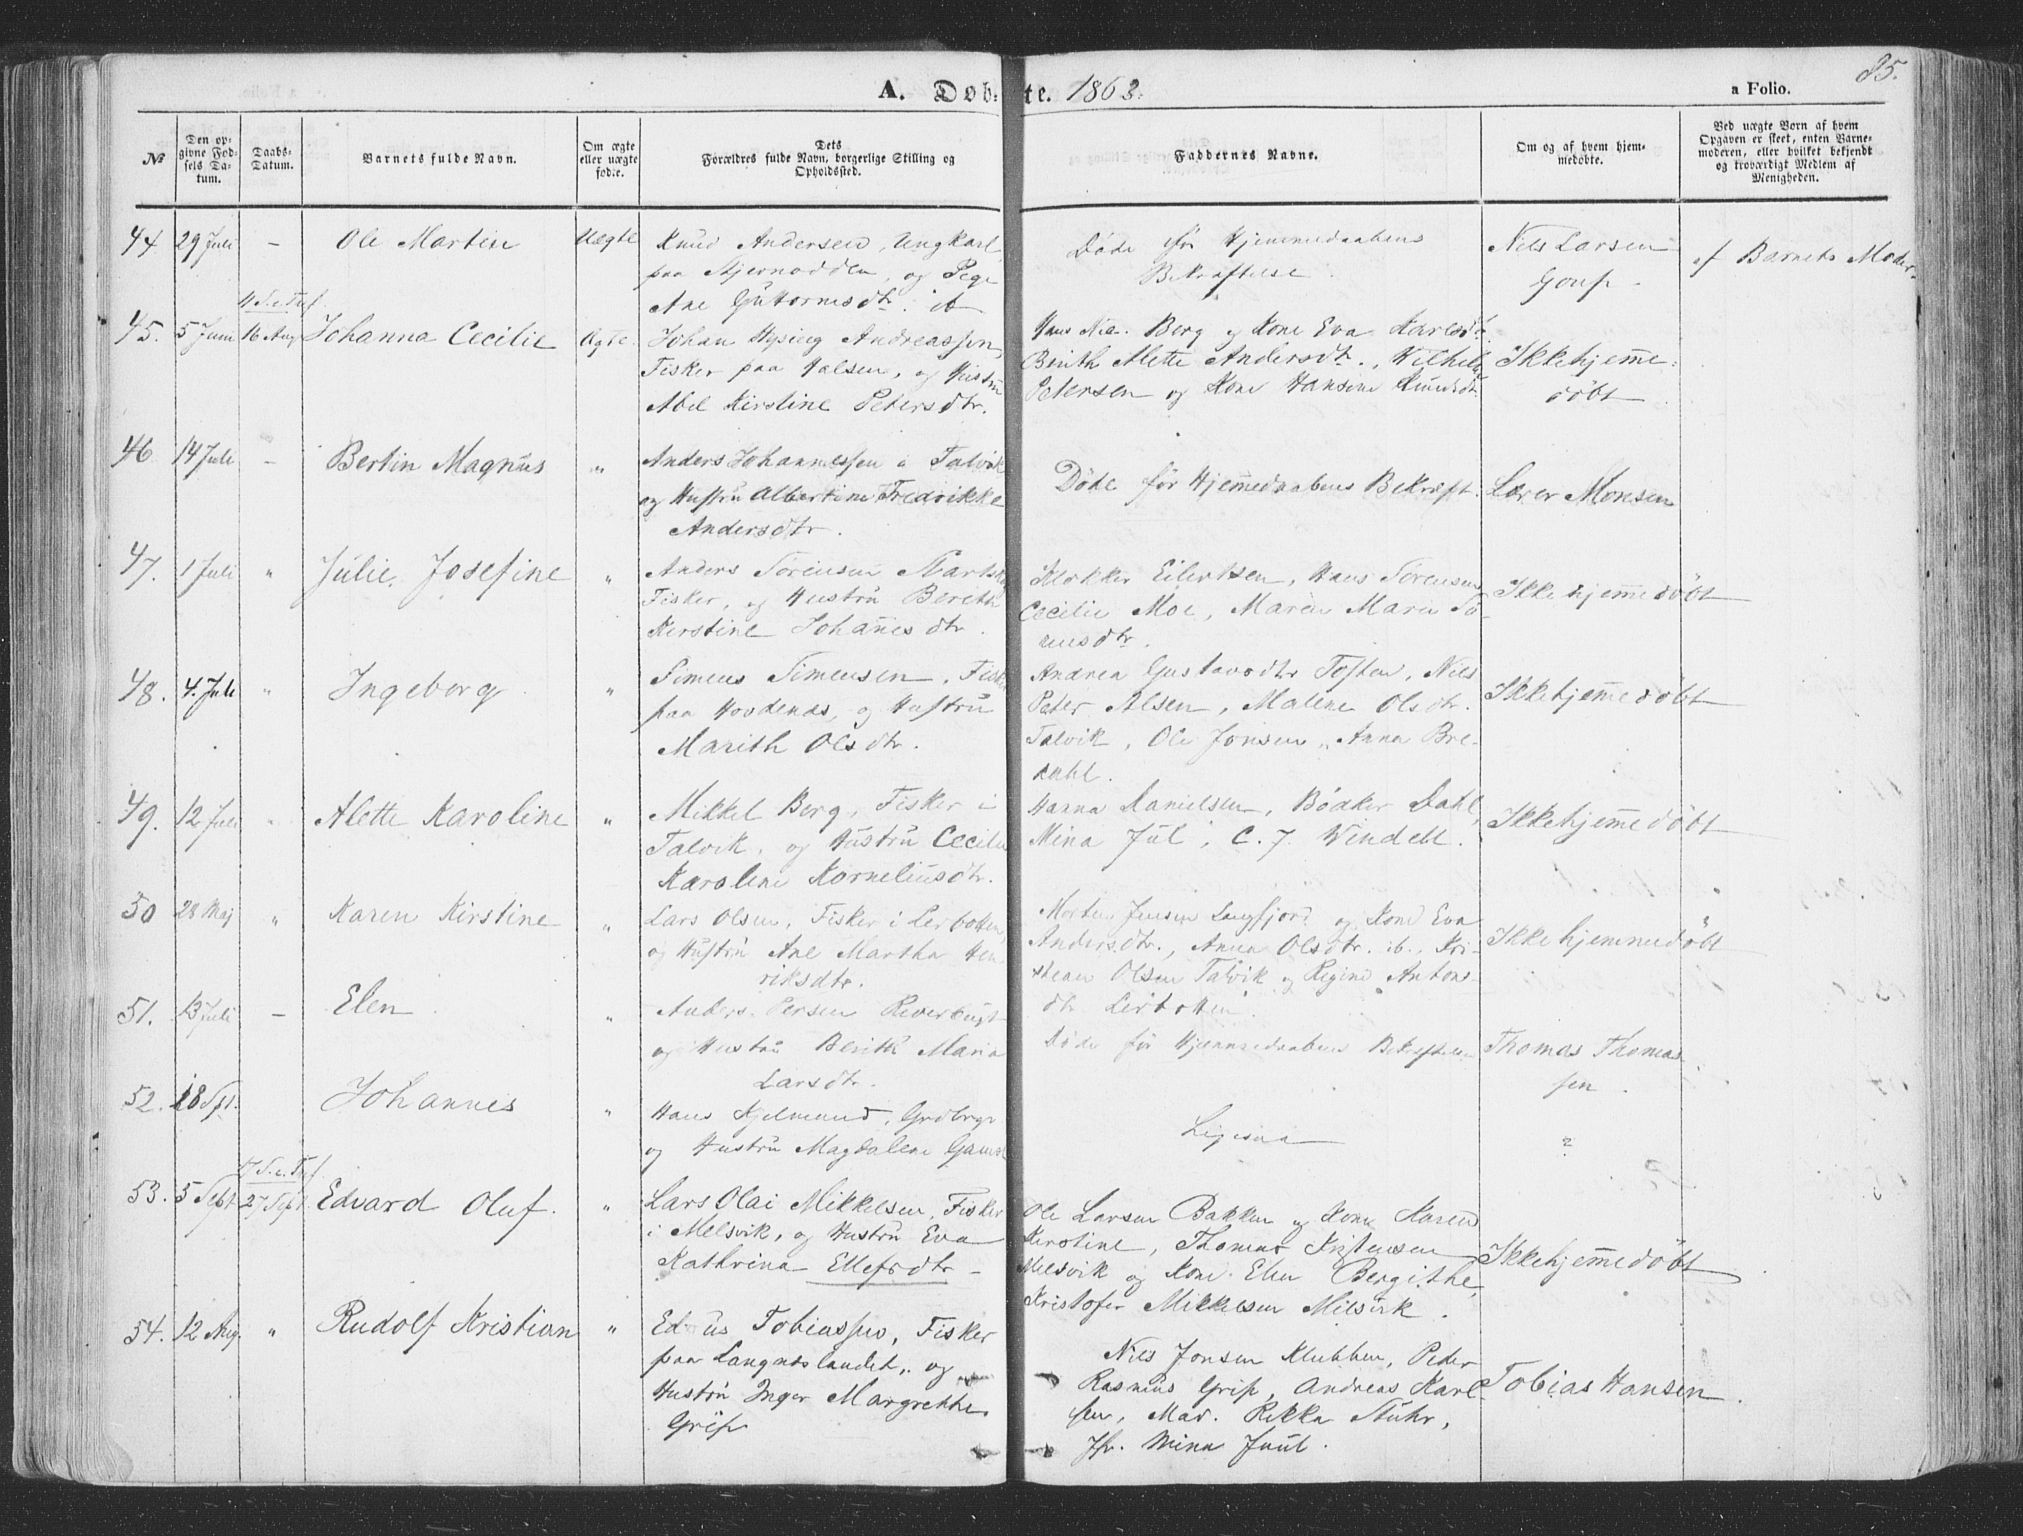 A. Døb- te. 1863.
a Folio. 85.
№
Den opgivne Fodsels Datum.
Daabs-Datum.
Barnets fulde Navn.
Om ægte eller uægte fodt.
Dets Forældres fulde Navn, borgerlige Stilling og Opholdssted.
Faddernes Navne.
Om og af hvem hjemmedøbte.
Ved uægte Born af hvem Opgaven er skeet, enten Barnemoderen, eller hvilket bekjendt og troværdigt Medlem af Menigheden.
44 29 Juli - Ole Martin Uægte
Knud Andersen, Ungkarl
paa Stjernodden, og Pige
Ane Guttormsdtr. ib
Døde før Hjemmedaabens
Bekræftelse.
Nils Larsen
af Barnets Moder.
45. 5 Juni 16 Aug Johanna Cecilie Ægte.
Johan Hysing Andreassen,
Fisker paa Halsen, og Hustru
Abel Kirstine Petersdtr.
Hans Nic. Berg og Kone Eva Karlsdtr.
Berith Mette Andersdtr., Vilhelm
Petersen og Kone Hansine Knudsdtr.
Ikkehjemme-
døbt
46 14 Juli - Bertin Magnus "
Anders Johannessen i Talvik
og Hustru Albertine Fredrikke
Andersdtr.
Døde før Hjemmedaabens Bekræft.
Lærer Monsen
47. 1 Juli " Julie Josefine "
Anders Sørensen
Fisker, og Hustru Bereth
Kirstine Johannesdtr.
Klokker Eilertsen, Hans Sørensen,
Cecilie Moe, Maren Maria Sø-
rensdtr.
Ikkehjemmedøbt
48. 4. Juli " Ingeborg "
Simens Simensen, Fisker
paa Hovdenæs, og Hustru
Marith Olsdtr.
Andrea Gustavsdtr Toften, Nils
Peter Alsen, Malene Olsdtr.
Talvik, Ole Jonsen, Anna Bre-
dahl.
Ikkehjemmedøbt
49. 12 Juli " Alette Karoline "
Mikkel Berg, Fisker i
Talvik, og Hustru Cecilie
Karoline Korneliusdtr.
Hanna Danielsen, Bødker Dahl,
Mina Jul, C. J. Windell.
Ikkehjemmedøbt
50 28 Maj " Karen Kirstine "
Lars Olsen, Fisker i Lerbotten,
og Hustru Ane Martha Hen-
riksdtr.
Morten Jensen Langfjord og Kone Eva
Andersdtr., Anna Olsdtr. ib., Kri-
stian Olsen Talvik og Regine Antons-
dtr Lerbotten.
Ikkehjemmedøbt
51. 13 Juli - Elen "
Anders Persen
og Hustru Berith Maria
Larsdtr.
Døde før Hjemmedaabens Bekræftelse
Thomas Thomas-
sen.
52. 18 Spt. Johannes "
Hans Kjelmund, Grdbrgr
og Hustru Magdalene
Ligesaa
?
53. 5 Sept 27 Sept. Edvard Oluf. "
Lars Olai Mikkelsen, Fisker
i Melsvik, og Hustru Eva
Kathrina Ellefsdtr -
Ole Larsen Bakken og Kone Karen
Kirstine, Thomas Kristensen
Melsvik og Kone Elen Bergithe,
Kristofer Mikkelsen Milsvik.
Ikkehjemmedøbt
54. 12 Aug. " Rudolf Kristian "
Tobiassen, Fisker
paa Langnæslandet, og
Hustru Inger Margrethe
Grip
Nils Jonsen Klubben, Peder
Rasmus Grip, Andreas Karl-
sen, Mad. Rikka Stuhr,
Jfr. Mina Juul.
Tobias Hansen.